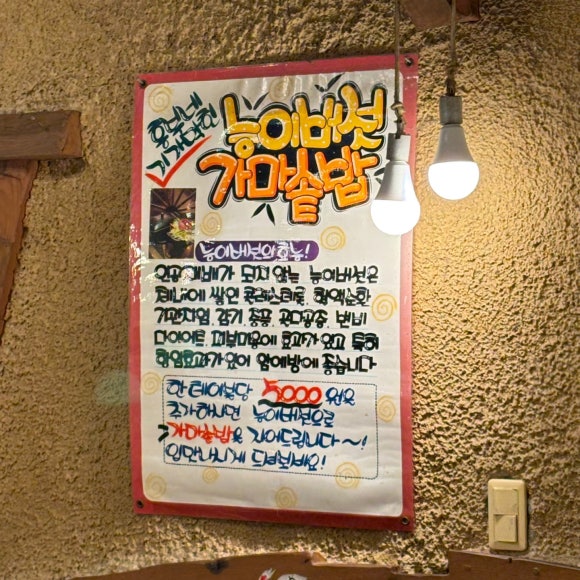 흥부네
기가막힌
능이버섯
가마솥밥
능이버섯의효능!
인공재배가 되지 않는 능이버섯은
체내에 쌓인 콜레스테롤, 혈액순환
기관지염, 감기, 중풍, 골다공증, 변비
다이어트, 피부미용에 효과가 있고 특히
항암효과가 있어 암예방에 좋습니다
한테이블당 5,000원을
추가하시면 능이버섯으로
가마솥밥을 지어드립니다~!
의만나시게 드셔보세요!